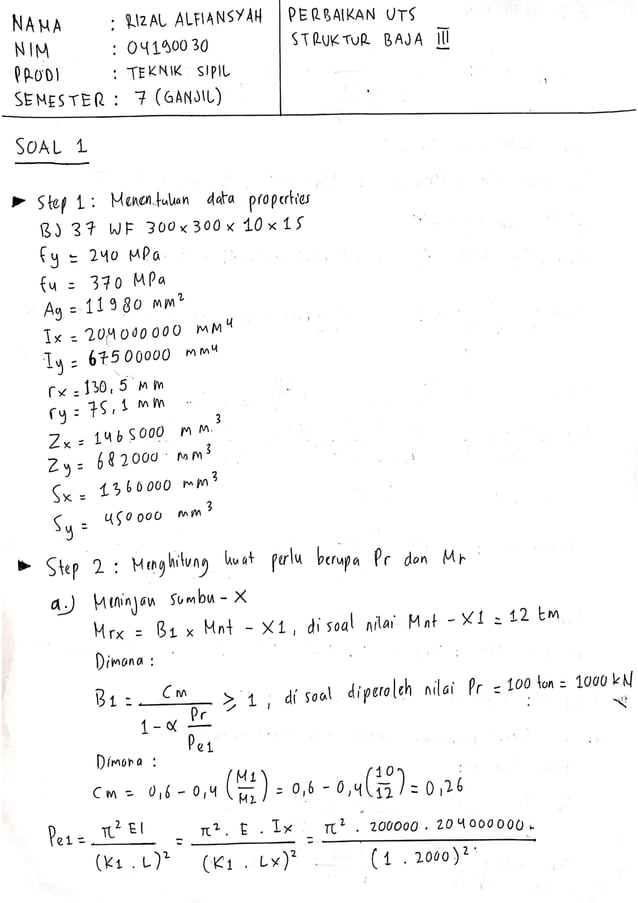 NAMA : RIZAL ALFIANSYAH
NIM : 04190030
PRODI : TEKNIK SIPIL
SEMESTER : 7 (GANJIL)
PERBAIKAN UTS
STRUKTUR BAJA III
SOAL 1
► Step 1 : Menentukan data properties
BJ 37 WF 300x300x10x15
fy = 240 MPa
fu = 370 MPa
Ag = 11980 mm²
Ix = 204000000 mm⁴
Iy = 67500000 mm⁴
rx = 130,5 mm
ry = 75,1 mm
Zx = 1465000 mm³
Zy = 682000 mm³
Sx = 1360000 mm³
Sy = 450000 mm³
► Step 2 : Menghitung kuat perlu berupa Pr dan Mr
a.) Meninjau sumbu-X
Mrx = B1 x Mnt - X1, di soal nilai Mnt - X1 = 12 tm
Dimana :
B1 = Cm / (1-α Pr/Pe1) ≥ 1, di soal diperoleh nilai Pr = 100 ton = 1000 kN
Dimana :
Cm = 0,6 - 0,4 (M1/M2) = 0,6 - 0,4 (10/12) = 0,26
Pe1 = π² EI / (K1 . L)² = π² . E . Ix / (K1 . Lx)² = π² . 200000 . 204000000 / (1 . 2000)²